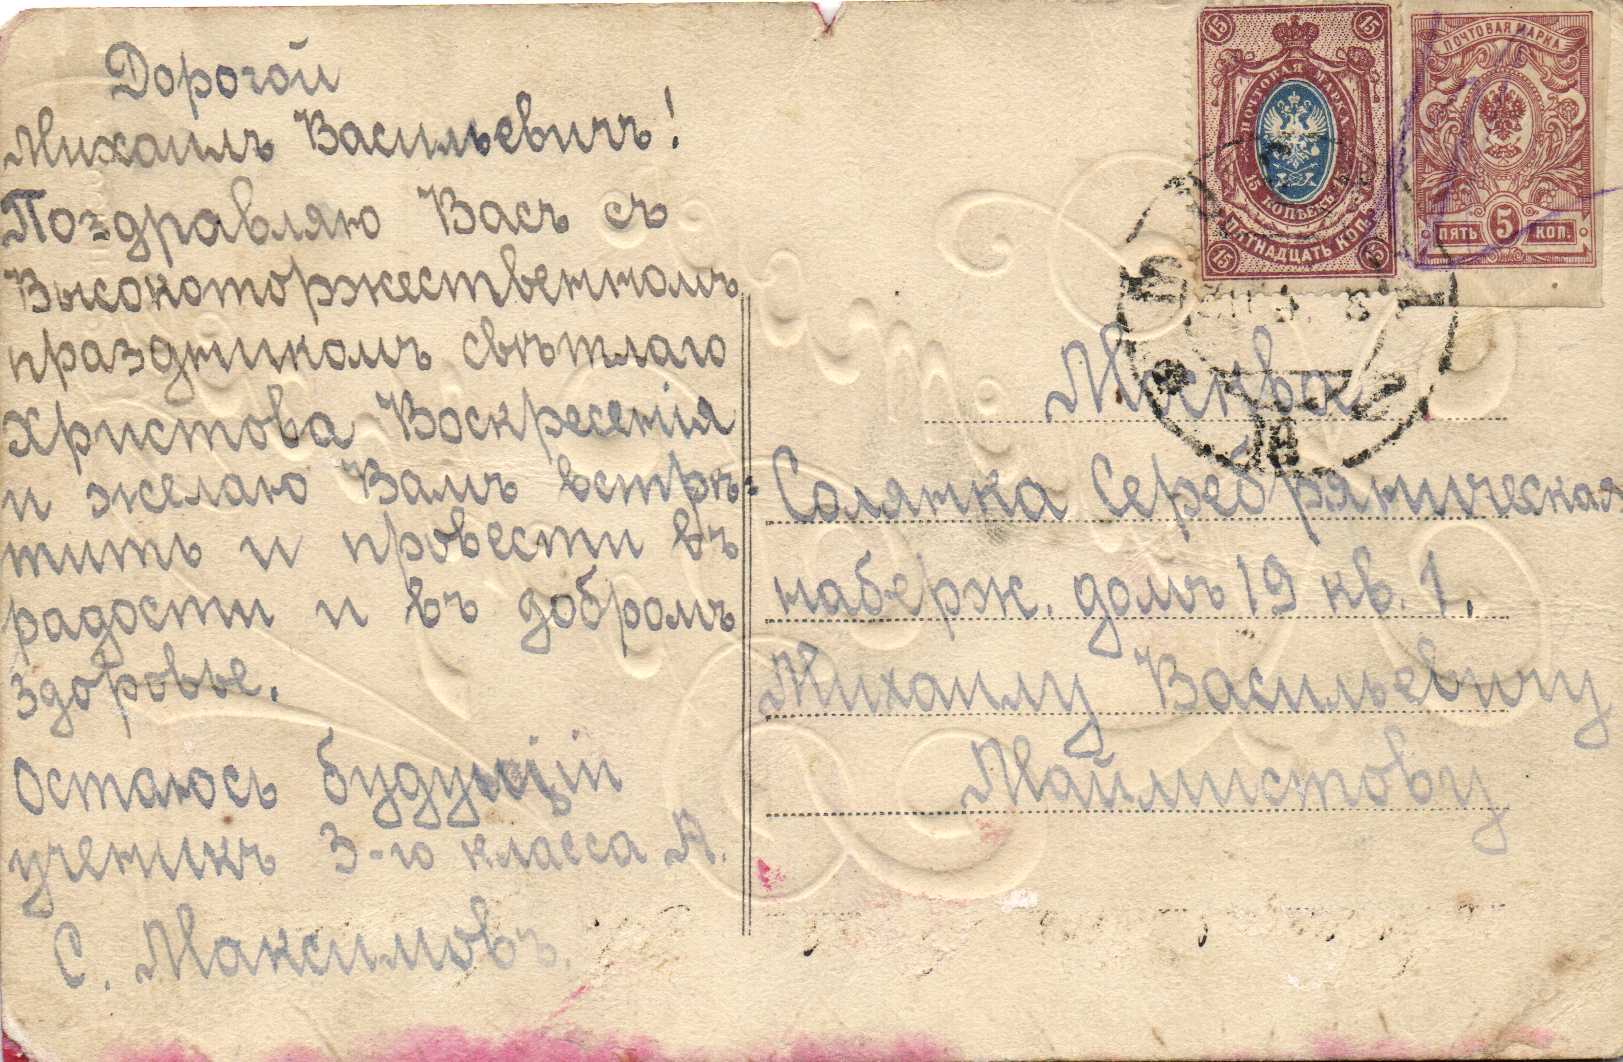 Дорогой
Михаилъ Васильевичъ!
Поздравляю Васъ съ
Высокоторжественнымъ
праздникомъ свѣтлаго
Христова Воскресенія
и желаю Вамъ встрѣ-
тить и провести въ
радости и въ добромъ
здоровье.
Остаюсь будущій
ученикъ 3-го класса А.
С. Максимовъ.
15 15
ПОЧТОВАЯ МАРКА
15 КОПѢЕКЪ 15
ПЯТНАДЦАТЬ КОП.
15 15
ПОЧТОВАЯ МАРКА
ПЯТЬ 5 КОП.
Москва
Солянка Серебряническая
набереж. домъ 19 кв. 1.
Михаилу Васильевичу
Майлистову